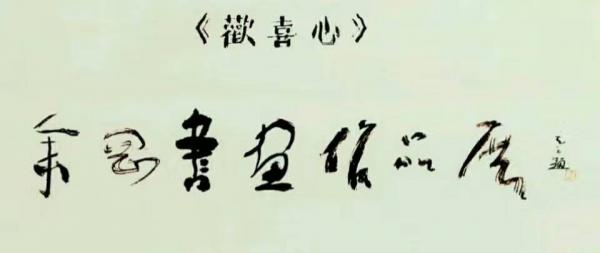 《歡喜心》
余岡書畫作品展